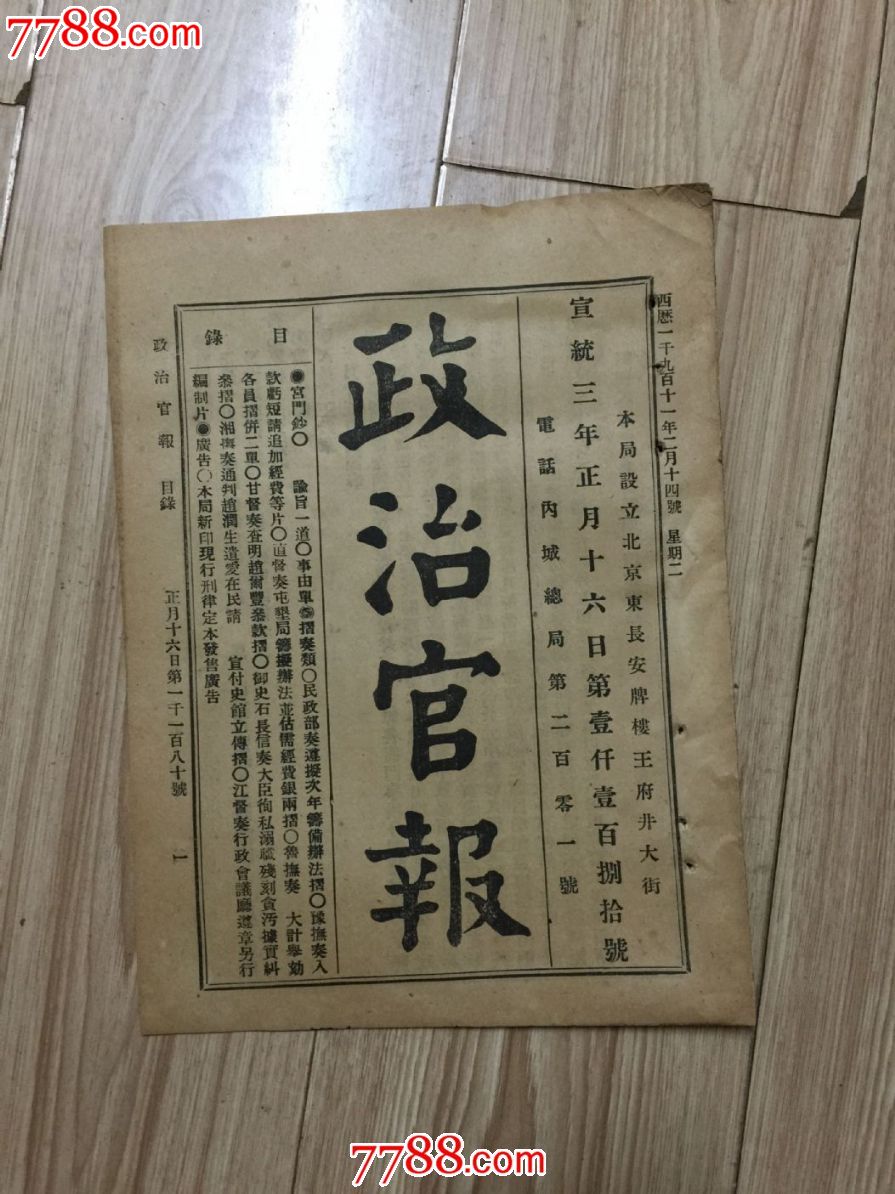 7788.com
西曆一千九百十一年二月十四號 星期二
本局設立北京東長安牌樓王府井大街
宣統三年正月十六日第壹仟壹百捌拾號
電話內城總局第二百零一號
政治官報
目錄
●宮門鈔○ 諭旨一道○事由單●摺奏類○民政部奏遵擬次年籌備辦法摺○豫撫奏入
款虧短請追加經費等片○直督奏屯墾局籌擬辦法並估需經費銀兩摺○魯撫奏 大計舉劾
各員摺併二單○甘督奏查明趙爾豐參款摺○御史石長信奏大臣徇私溺職殘刻貪污據實糾
參摺○湘撫奏通判趙潤生遺愛在民請 宣付史館立傳摺○江督奏行政會議廳遵章另行
編制片●廣告○本局新印現行刑律定本發售廣告
政治官報 目錄 正月十六日第一千一百八十號 一
7788.com